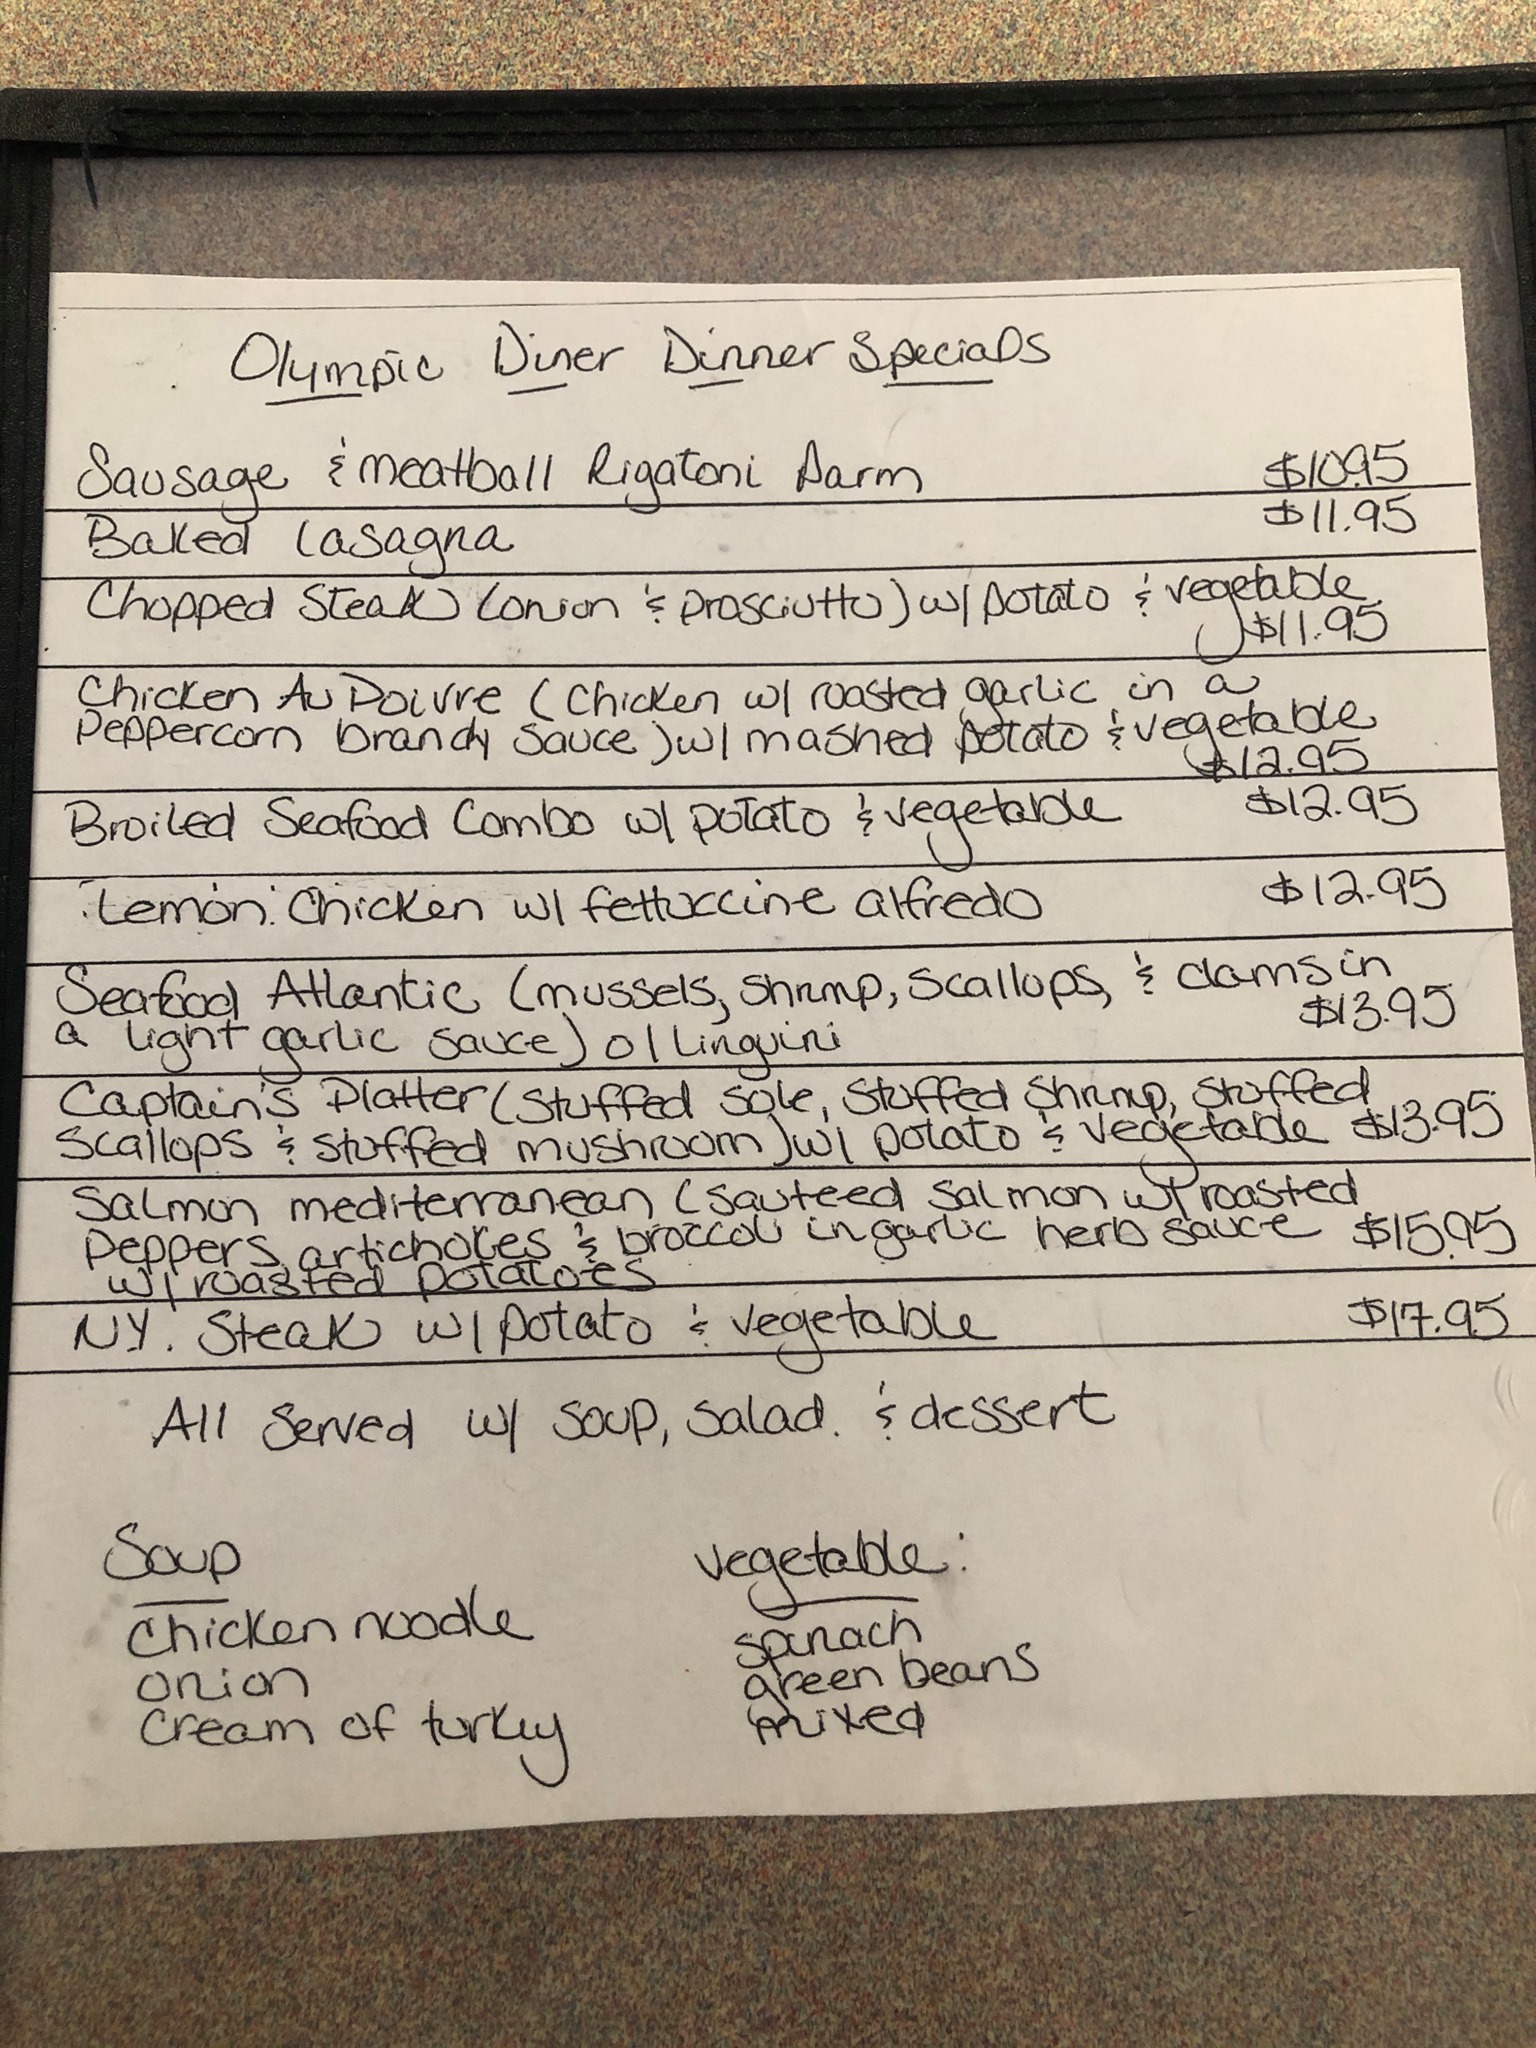 Olympic Diner Dinner Specials
Sausage & meatball Rigatoni Parm $10.95
Baked Lasagna $11.95
Chopped Steak (onion & prosciutto) w/ potato & vegetable
$11.95
Chicken Au Poivre (chicken w/ roasted garlic in a
peppercorn brandy sauce) w/ mashed potato & vegetable
$12.95
Broiled Seafood Combo w/ potato & vegetable $12.95
Lemon Chicken w/ fettuccine alfredo $12.95
Seafood Atlantic (mussels, shrimp, scallops, & clams in
a light garlic sauce) o/ linguini $13.95
Captain's Platter (stuffed sole, stuffed shrimp, stuffed
scallops & stuffed mushroom) w/ potato & vegetable $13.95
Salmon mediterranean (sauteed salmon w/ roasted
peppers, artichokes & broccoli in garlic herb sauce $15.95
w/ roasted potatoes
N.Y. Steak w/ potato & vegetable $17.95
All served w/ soup, salad. & dessert
Soup
chicken noodle
onion
cream of turkey
vegetable:
spinach
green beans
mixed